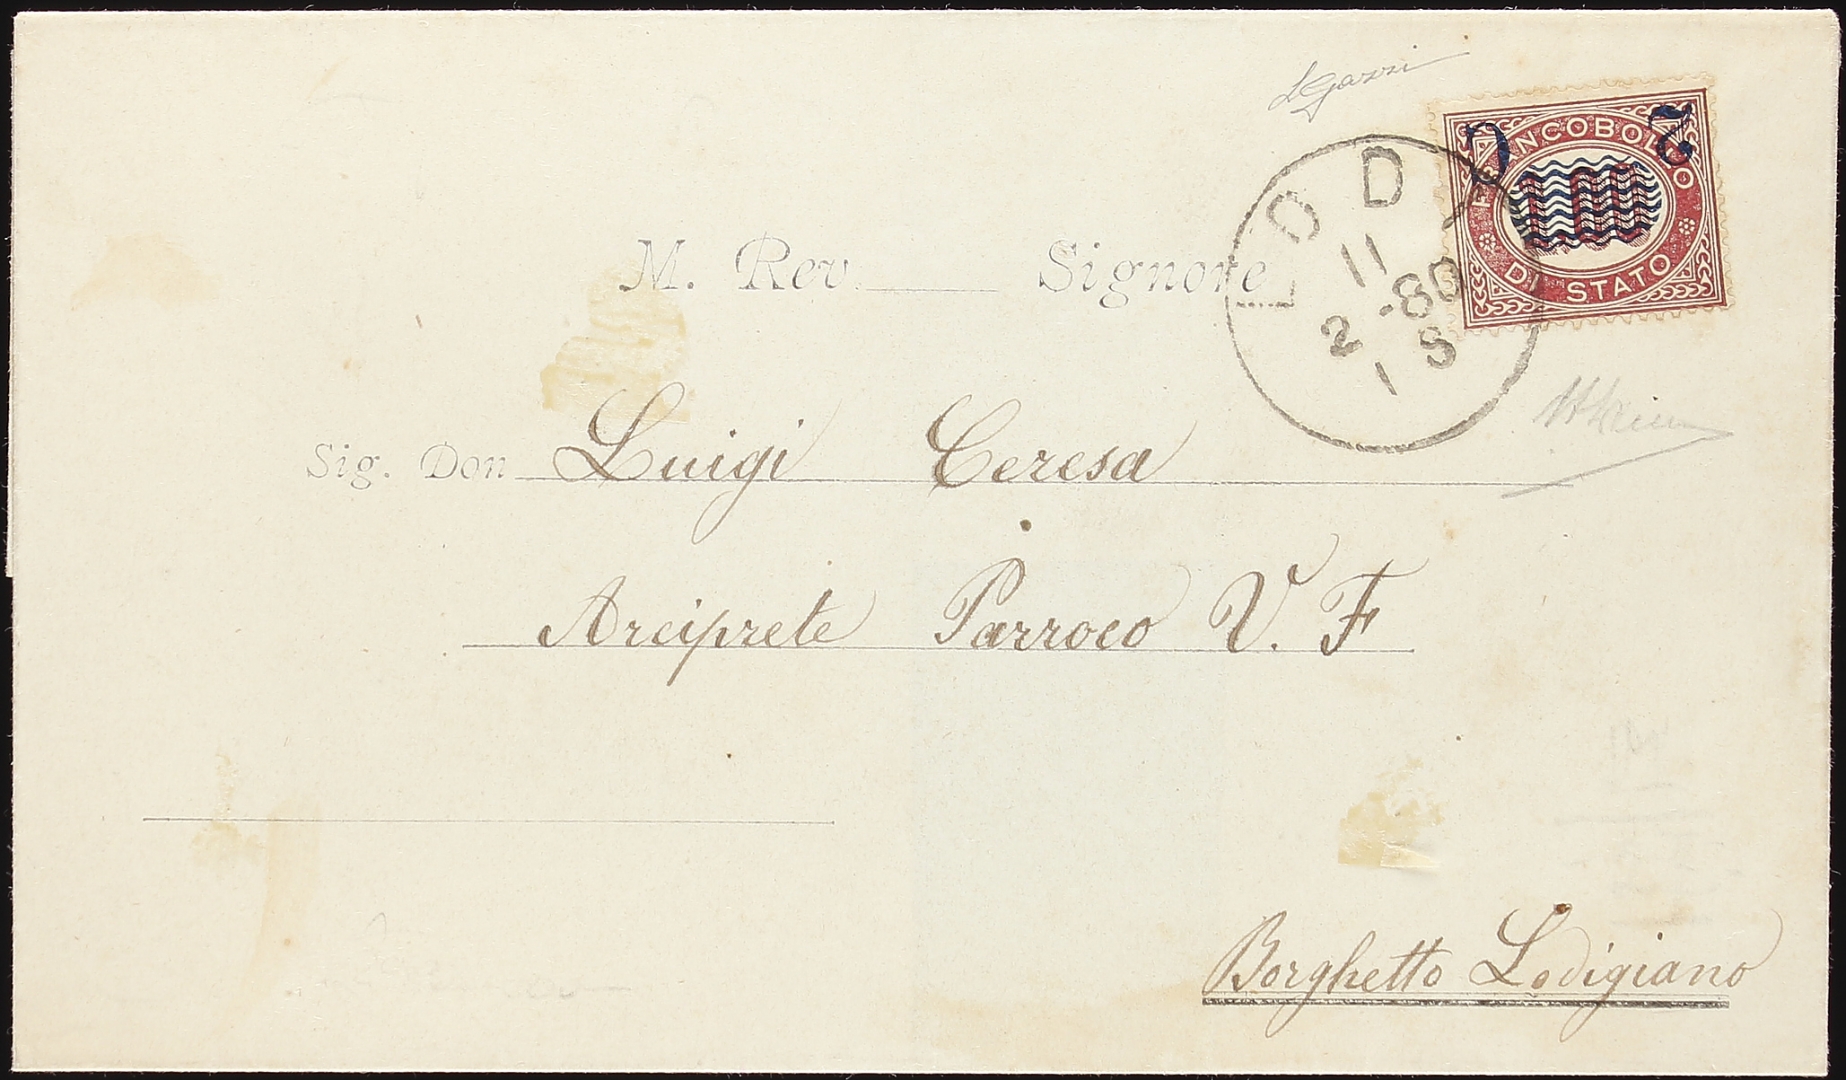 LGazzi
2 C
FRANCOBOLLO
DI STATO
LODI
11
2 -80
1 S
M. Rev. Signore
Sig. Don Luigi Ceresa
Arciprete Parroco V. F
Borghetto Lodigiano